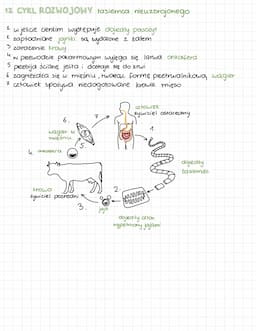 12. CYKL ROZWOJOWY tasiemca nieuzbrojonego
1. w jelicie cienkim występuje dojrzały pasożyt
2. zapłodnione jajniki są wydalane z kałem
3. zarażenie krowy
4. w przewodzie pokarmowym wylęga się larwa onkosfera
5. przebija ścianę jelita i dostaje się do krwi
6. zagnieżdża się w mięśniu, tworząc formę przetrwalnikową, wągier
7. człowiek spożywa niedogotowane krowie mięso
człowiek
żywiciel ostateczny
7.
1.
6.
wągier w
mięśniu
5.
dojrzały
tasiemiec
4.
onkosfera
krowa
żywiciel pośredni
2.
3.
jaja
dojrzały człon
wypełniony jajami